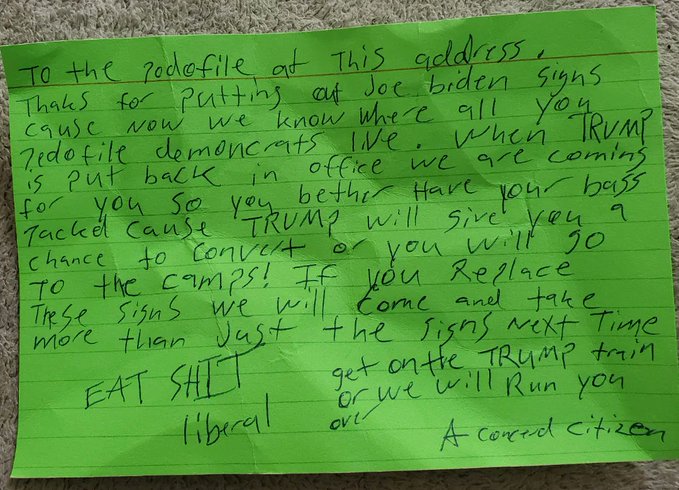 To the Pedofile at This address.
Thaks for Putting out Joe biden signs
cause Now we know where all you
Pedofile demoncrats live. When TRUMP
is put back in office we are coming
for you so you bether Have your bags
Packed cause TRUMP will give you a
chance to convert or you will go
To the camps! If you Replace
These signs we will come and take
more than Just the signs Next Time
EAT SHIT
liberal
get on the TRUMP train
or we will Run you
over
A concerd citizen